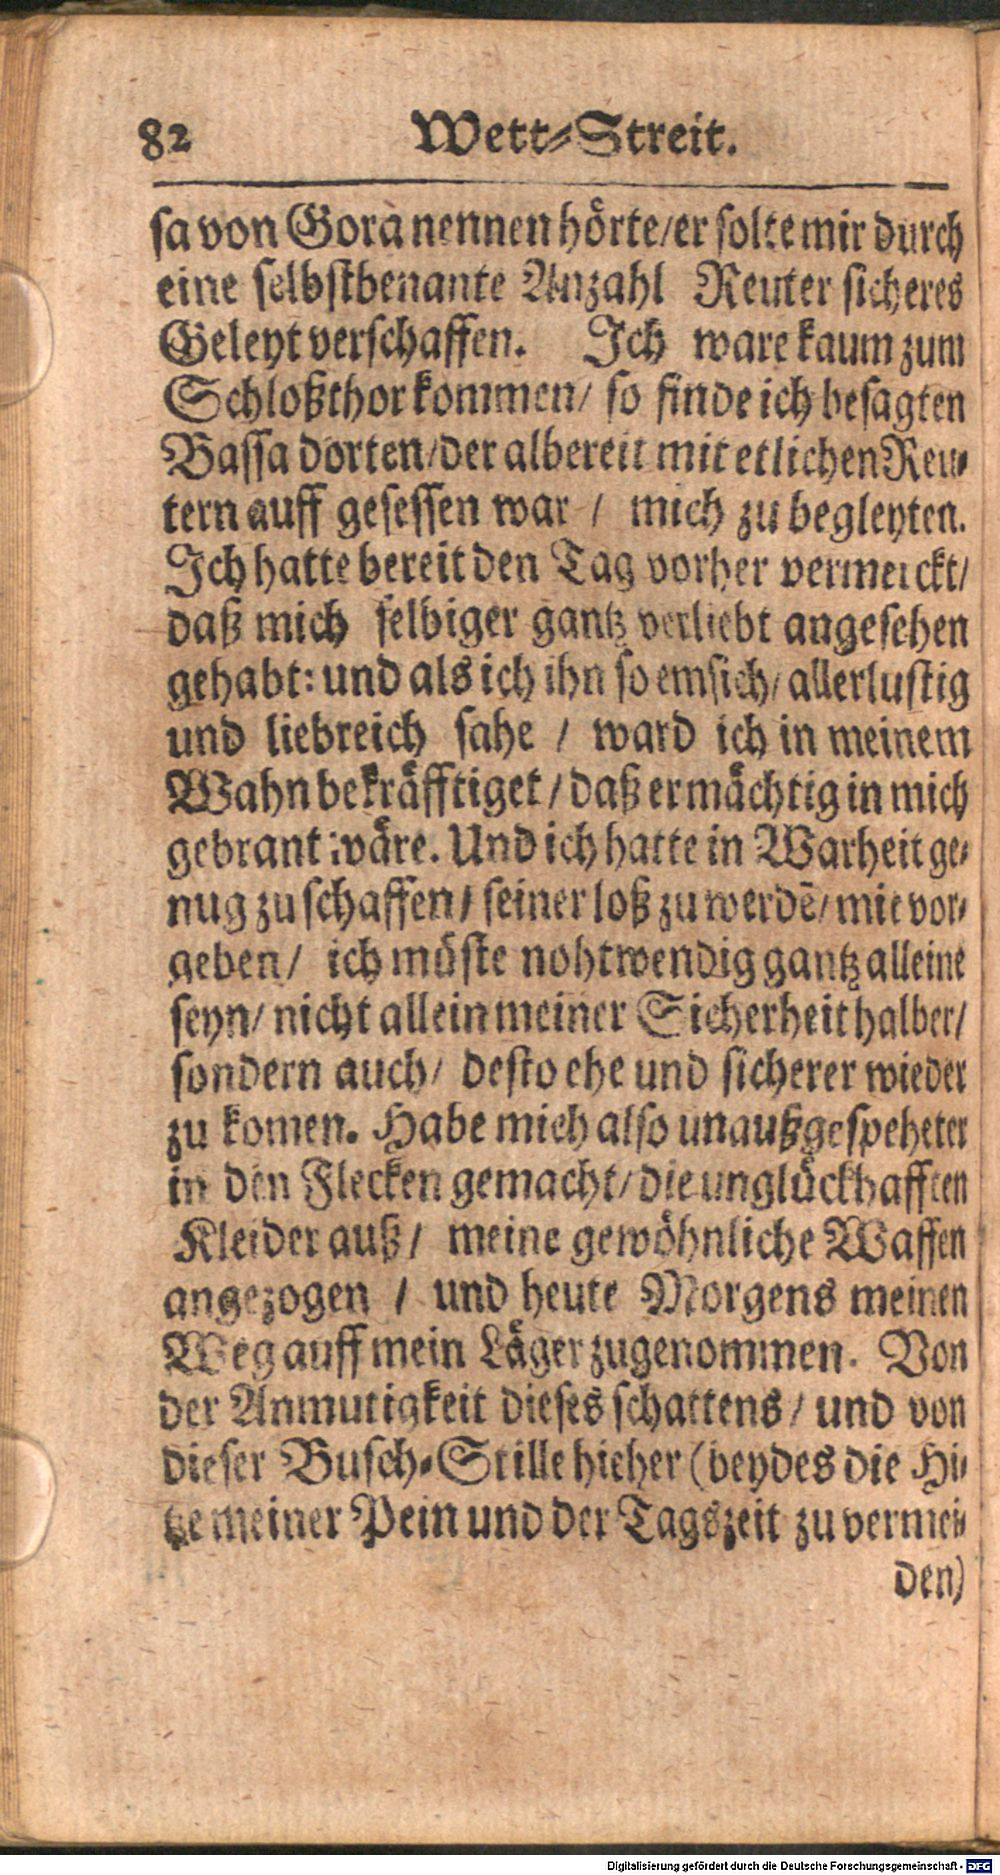 82 Wett-Streit.
sa von Gora nennen hörte/er solte mir durch
eine selbstbenante Anzahl Reuter sicheres
Geleyt verschaffen. Ich ware kaum zum
Schloßthor kommen/ so finde ich besagten
Bassa dorten/der albereit mit etlichen Reu-
tern auff gesessen war / mich zu begleyten.
Ich hatte bereit den Tag vorher vermerckt/
daß mich selbiger gantz verliebt angesehen
gehabt: und als ich ihn so emsich/ allerlustig
und liebreich sahe / ward ich in meinem
Wahn bekräfftiget/daß er mächtig in mich
gebrant wäre. Und ich hatte in Warheit ge-
nug zu schaffen/ seiner loß zu werdē/mit vor-
geben/ ich müste nohtwendig gantz alleine
seyn/ nicht allein meiner Sicherheit halber/
sondern auch/ desto ehe und sicherer wieder
zu komen. Habe mich also unaußgespeheter
in den Flecken gemacht/die unglückhafften
Kleider auß/ meine gewöhnliche Waffen
angezogen / und heute Morgens meinen
Weg auff mein Läger zugenommen. Von
der Anmutigkeit dieses schattens/ und von
dieser Busch-Stille hieher (beydes die Hi-
tze meiner Pein und der Tagszeit zu vermei-
den)
Digitalisierung gefördert durch die Deutsche Forschungsgemeinschaft - DFG